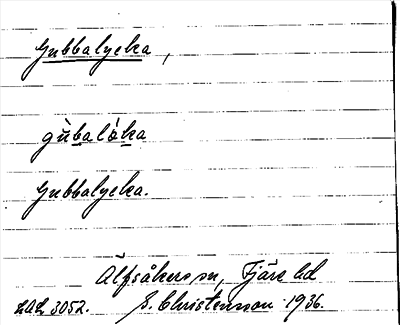 Gubbalycka,
gùbalỳka
Gubbalycka.
Älfsåkers sn, Fjäre hd
LAL 3052. S. Christensson 1936.